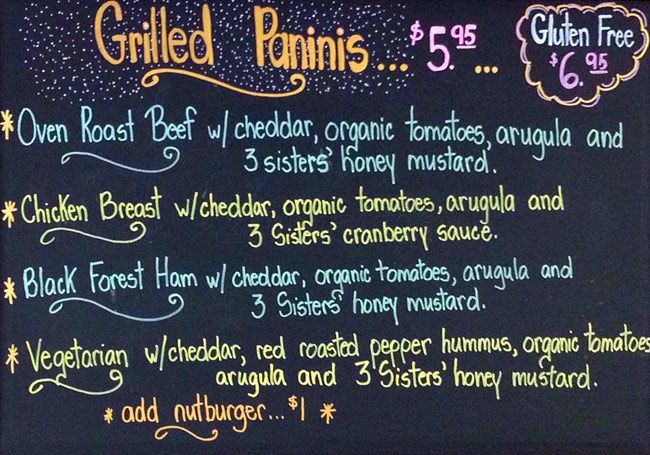 Grilled Paninis... $5.95 ...
Gluten Free
$6.95
*Oven Roast Beef w/ cheddar, organic tomatoes, arugula and
3 sisters' honey mustard.
*Chicken Breast w/cheddar, organic tomatoes, arugula and
3 Sisters' cranberry sauce.
*Black Forest Ham w/ cheddar, organic tomatoes, arugula and
3 Sisters' honey mustard.
*Vegetarian w/cheddar, red roasted pepper hummus, organic tomatoes
arugula and 3 Sisters' honey mustard.
*add nutburger...$1 *